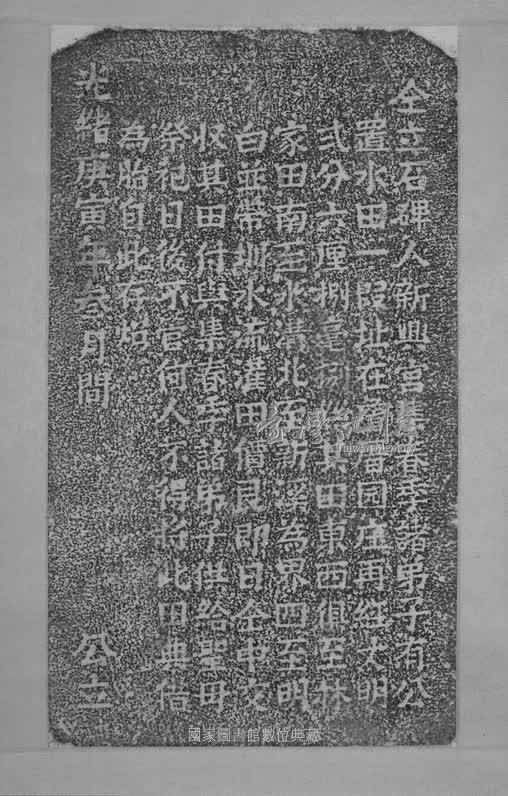 仝立石碑人新興宮集春季諸弟子有公
置水田一段址在 厝园庄再經丈明
弍分六厘捌毫捌 其田東西俱至林
家田南至水溝北至 溪為界四至明
白並帶圳水流灌田價艮即日仝中交
収其田付與集春季諸弟子供給聖母
祭祀日後不管何人不得将此田典借
為胎自此存炤
光緒庚寅年叁月間 公立
臺灣記憶
TaiwanMemory
國家圖書館數位典藏